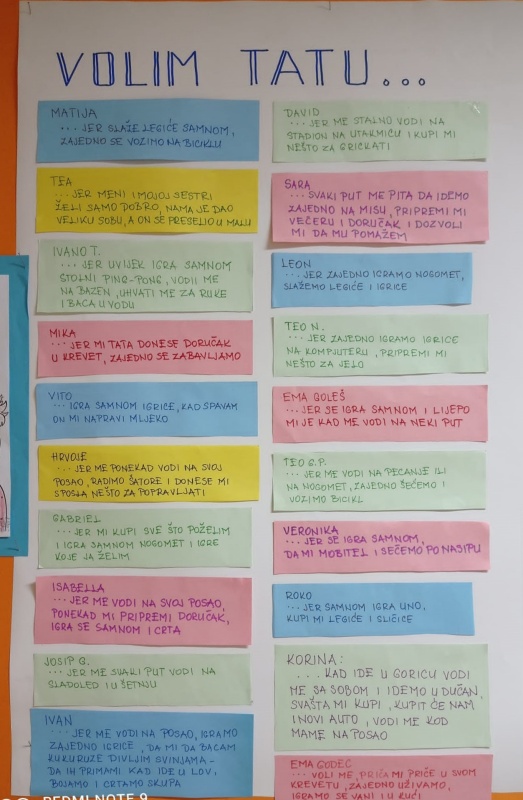 VOLIM TATU...
MATIJA
... JER SLAŽE LEGIĆE SAMNOM,
ZAJEDNO SE VOZIMO NA BICIKLU
TEA
... JER MENI I MOJOJ SESTRI
ŽELI SAMO DOBRO, NAMA JE DAO
VELIKU SOBU, A ON SE PRESELIO U MALU
IVANO T.
... JER UVIJEK IGRA SAMNOM
STOLNI PING-PONG, VODI ME
NA BAZEN, UHVATI ME ZA RUKE
I BACA U VODU
MIKA
... JER MI TATA DONESE DORUČAK
U KREVET, ZAJEDNO SE ZABAVLJAMO
VITO
... IGRA SAMNOM IGRICE, KAD SPAVAM
ON MI NAPRAVI MLJEKO
HRVOJE
... JER ME PONEKAD VODI NA SVOJ
POSAO, RADIMO ŠATORE I DONESE MI
S POSLA NEŠTO ZA POPRAVLJATI
GABRIEL
... JER MI KUPI SVE ŠTO POŽELIM
I IGRA SAMNOM NOGOMET I IGRE
KOJE JA ŽELIM
ISABELLA
... JER ME VODI NA SVOJ POSAO,
PONEKAD MI PRIPREMI DORUČAK,
IGRA SE SAMNOM I CRTA
JOSIP G.
... JER ME SVAKI PUT VODI NA
SLADOLED I U ŠETNJU
IVAN
... JER ME VODI NA POSAO, IGRAMO
ZAJEDNO IGRICE, DA MI DA BACAM
KUKURUZE DIVLJIM SVINJAMA -
DA IH PRIMAMI KAD IDE U LOV,
BOJAMO I CRTAMO SKUPA
DAVID
... JER ME STALNO VODI NA
STADION NA UTAKMICU I KUPI MI
NEŠTO ZA GRICKATI
SARA
... SVAKI PUT ME PITA DA IDEMO
ZAJEDNO NA MISU, PRIPREMI MI
VEČERU I DORUČAK I DOZVOLI
MI DA MU POMAŽEM
LEON
... JER ZAJEDNO IGRAMO NOGOMET,
SLAŽEMO LEGIĆE I IGRICE
TEO N.
... JER ZAJEDNO IGRAMO IGRICE
NA KOMPJUTERU, PRIPREMI MI
NEŠTO ZA JELO
EMA GOLEŠ
... JER SE IGRA SAMNOM I LIJEPO
MI JE KAD ME VODI NA NEKI PUT
TEO G.P.
... JER ME VODI NA PECANJE ILI
NA NOGOMET, ZAJEDNO ŠEĆEMO I
VOZIMO BICIKL
VERONIKA
... JER SE IGRA SAMNOM,
DA MI MOBITEL I ŠEĆEMO PO NASIPU
ROKO
... JER SAMNOM IGRA UNO,
KUPI MI LEGIĆE I SLIČICE
KORINA:
... KAD IDE U GORICU VODI
ME SA SOBOM I IDEMO U DUĆAN,
SVAŠTA MI KUPI, KUPIT ĆE NAM
I NOVI AUTO, VODI ME KOD
MAME NA POSAO
EMA GODEC
... VOLI ME, PRIČA MI PRIČE U SVOM
KREVETU, ZAJEDNO UŽIVAMO,
IGRAMO SE VANI I U KUĆI
REDMI NOTE 9